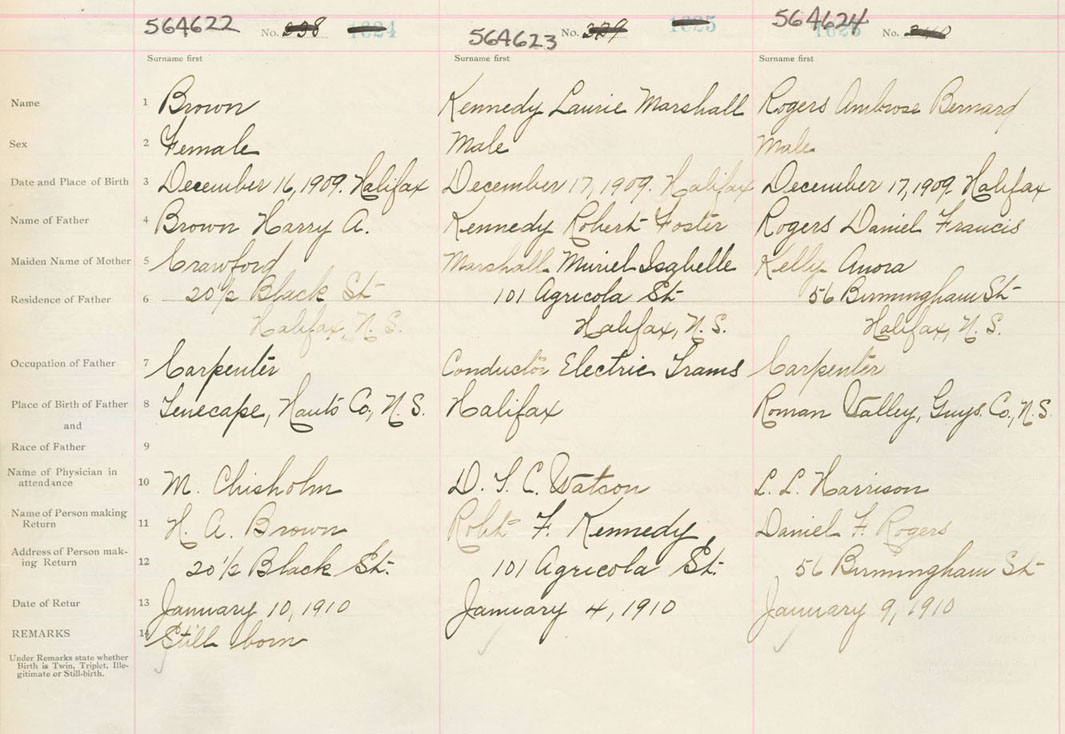 564622 No. 1624
564623 No. 1625
564624 1626 No.
Surname first Surname first Surname first
Name 1 Brown Kennedy Laurie Marshall Rogers Ambrose Bernard
Sex 2 Female Male Male
Date and Place of Birth 3 December 16, 1909. Halifax December 17, 1909. Halifax December 17, 1909. Halifax
Name of Father 4 Brown Harry A. Kennedy Robert Foster Rogers Daniel Francis
Maiden Name of Mother 5 Crawford Marshall Muriel Isabelle Kelly Anora
Residence of Father 6 20½ Black St. 101 Agricola St. 56 Birmingham St.
Halifax, N.S. Halifax, N.S. Halifax, N.S.
Occupation of Father 7 Carpenter Conductor Electric Trams Carpenter
Place of Birth of Father 8 Tenecape, Hants Co, N.S. Halifax Roman Valley, Guys. Co., N.S.
and
Race of Father 9
Name of Physician in
attendance 10 M. Chisholm D. T. C. Watson L. L. Harrison
Name of Person making
Return 11 H. A. Brown Robt F. Kennedy Daniel F. Rogers
Address of Person mak-
ing Return 12 20½ Black St. 101 Agricola St. 56 Birmingham St.
Date of Retur 13 January 10, 1910 January 4, 1910 January 9, 1910
REMARKS 14 Still born
Under Remarks state whether
Birth is Twin, Triplet, Ille-
gitimate or Still-birth.